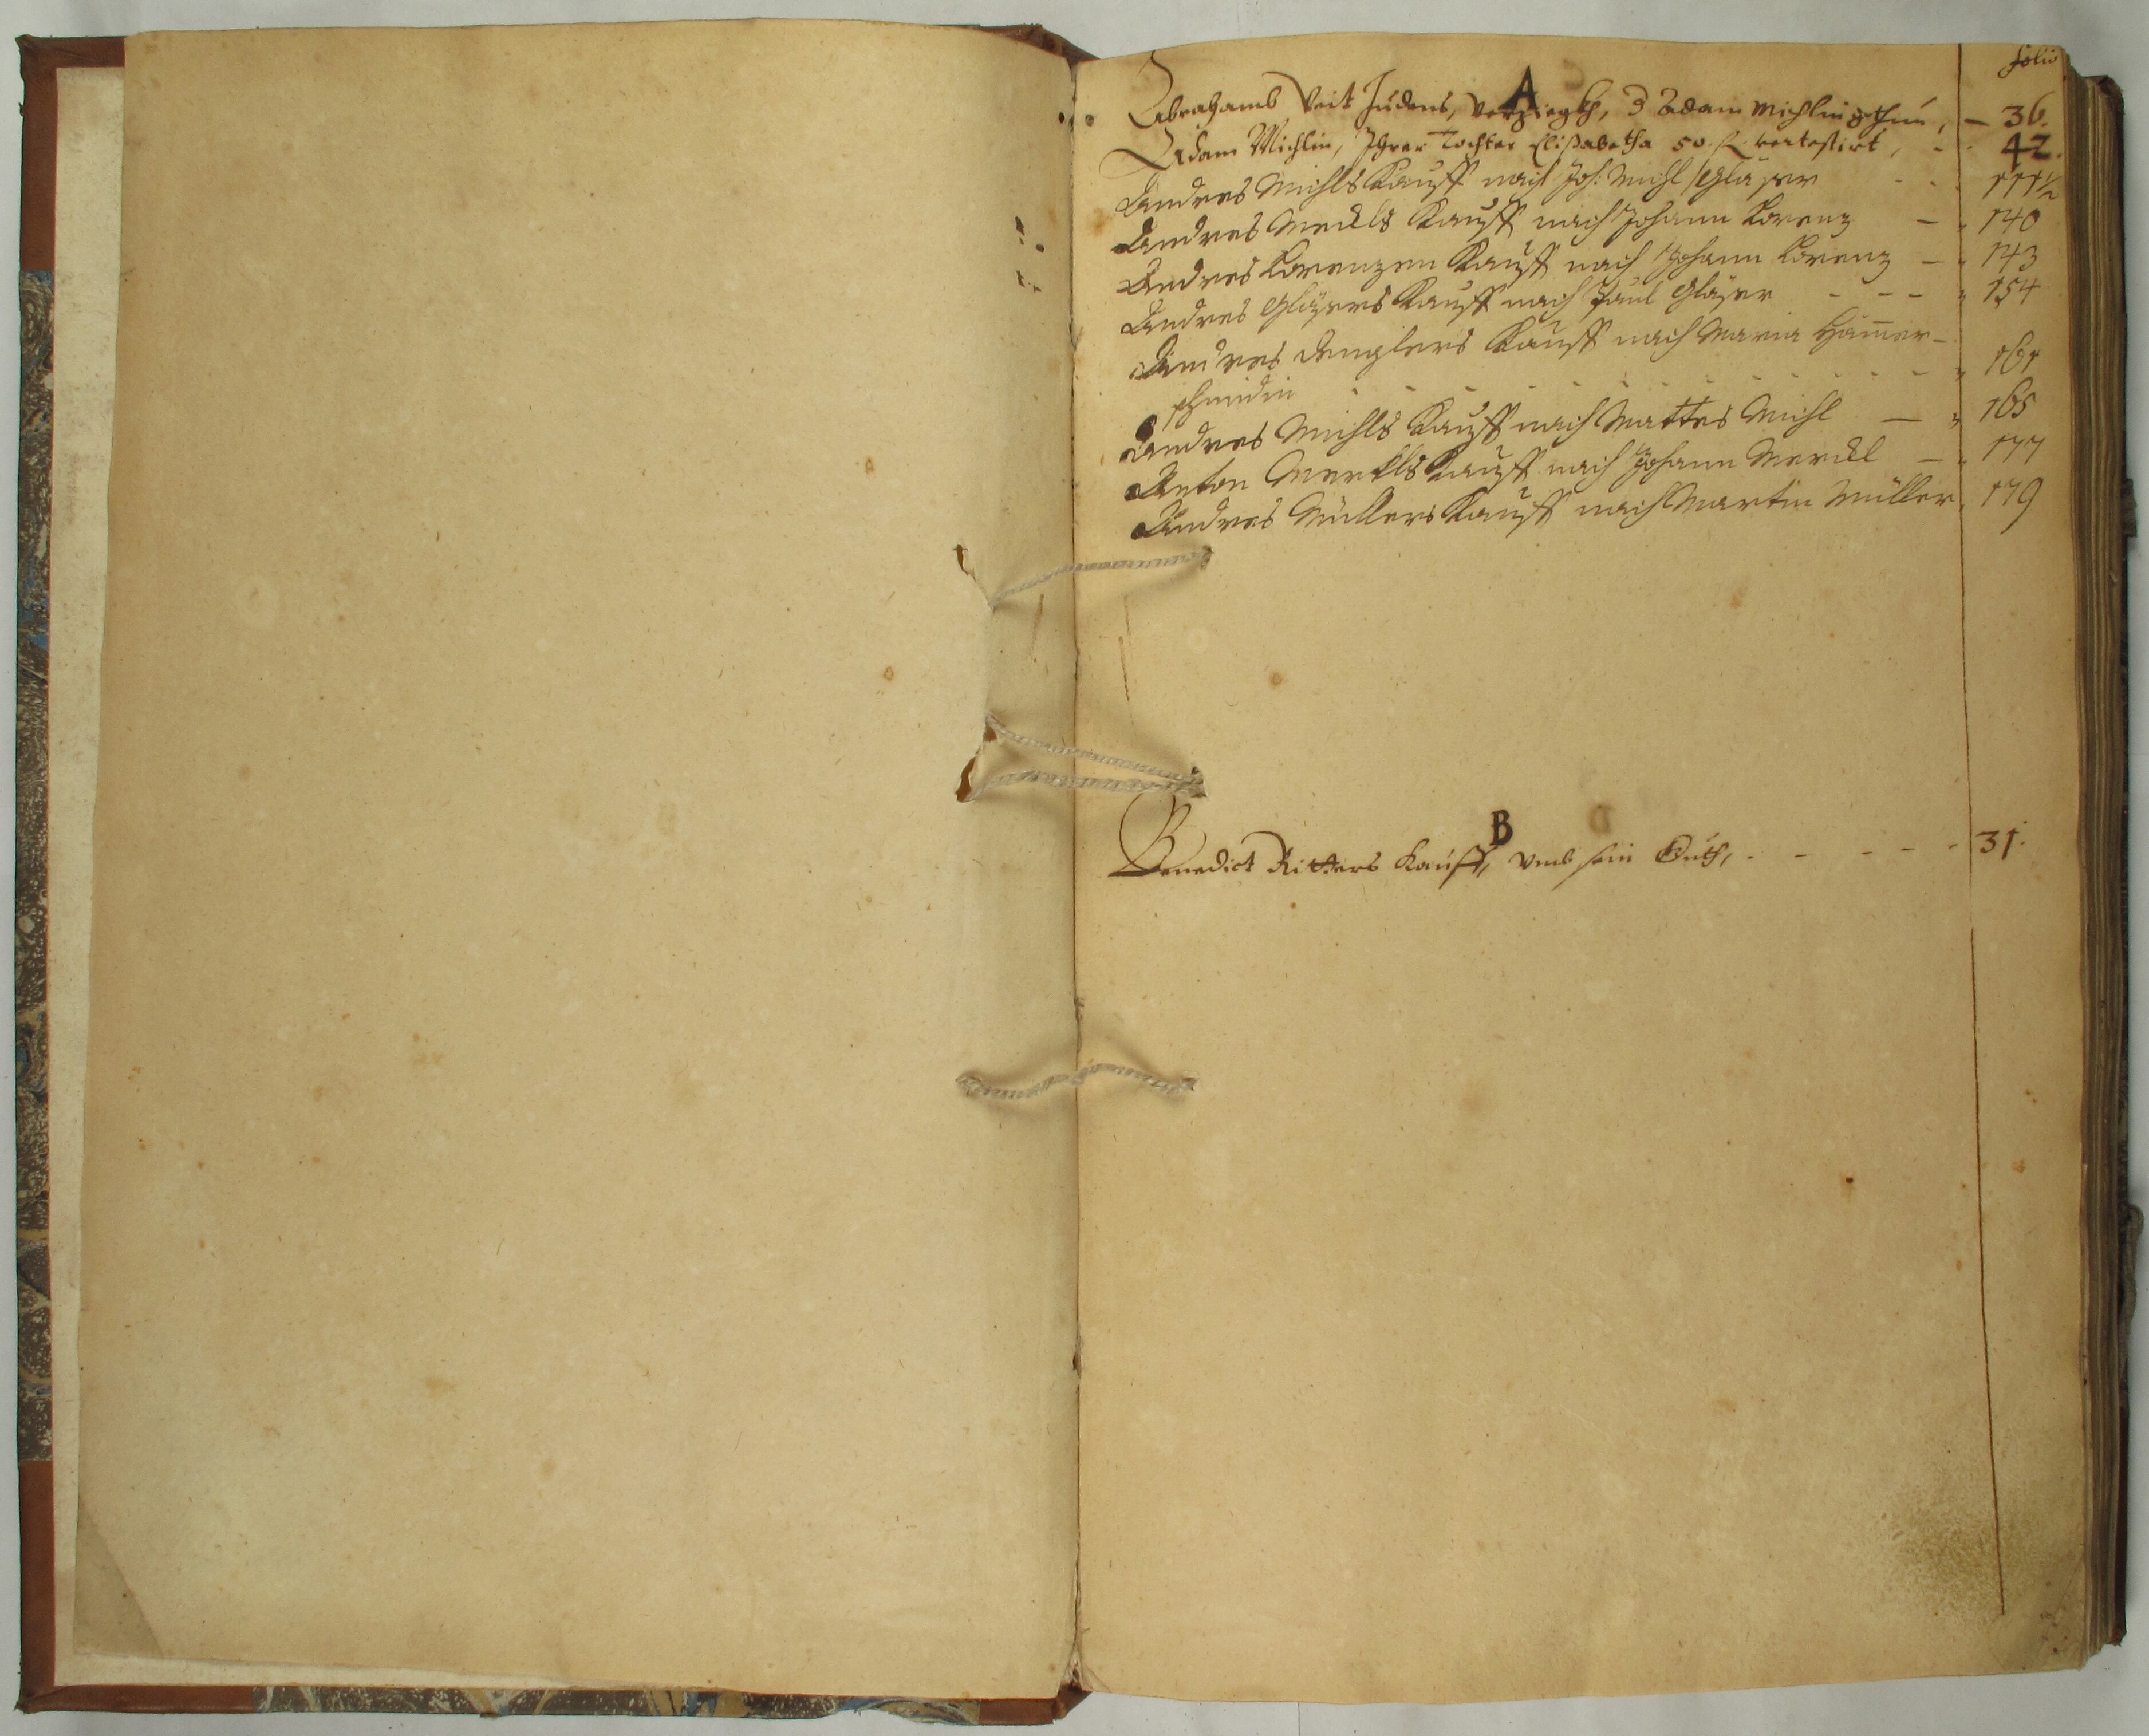 folio
A
Abrahamb Veit Judens, Verziegkh, 3 Adam Michlin gethun, — 36.
Adam Michlin, Ihrer Tochter Elisabetha 50 fl. vertestirt, - - 42.
Andres Michls Kauff nach Joh: Michl Glaser - - - 111½
Andres Merckls Kauff nach Johann Lorenz — " 140
Andres Lorenzen Kauff nach Johann Lorenz — " 143
Andres Glasers Kauff nach Paul Glaser - - - " 154
Andres Denglers Kauff nach Maria Ham̄er-
schmidin - - - - - - - - " 161
Andres Michls Kauff nach Mattes Michl — " 165
Anton Merckls Kauff nach Johann Merckl — " 177
Andres Müllers Kauff nach Martin Müller. 179
B
Benedict Ritters Kauff, vmb sein Guth, - - - - - 31.